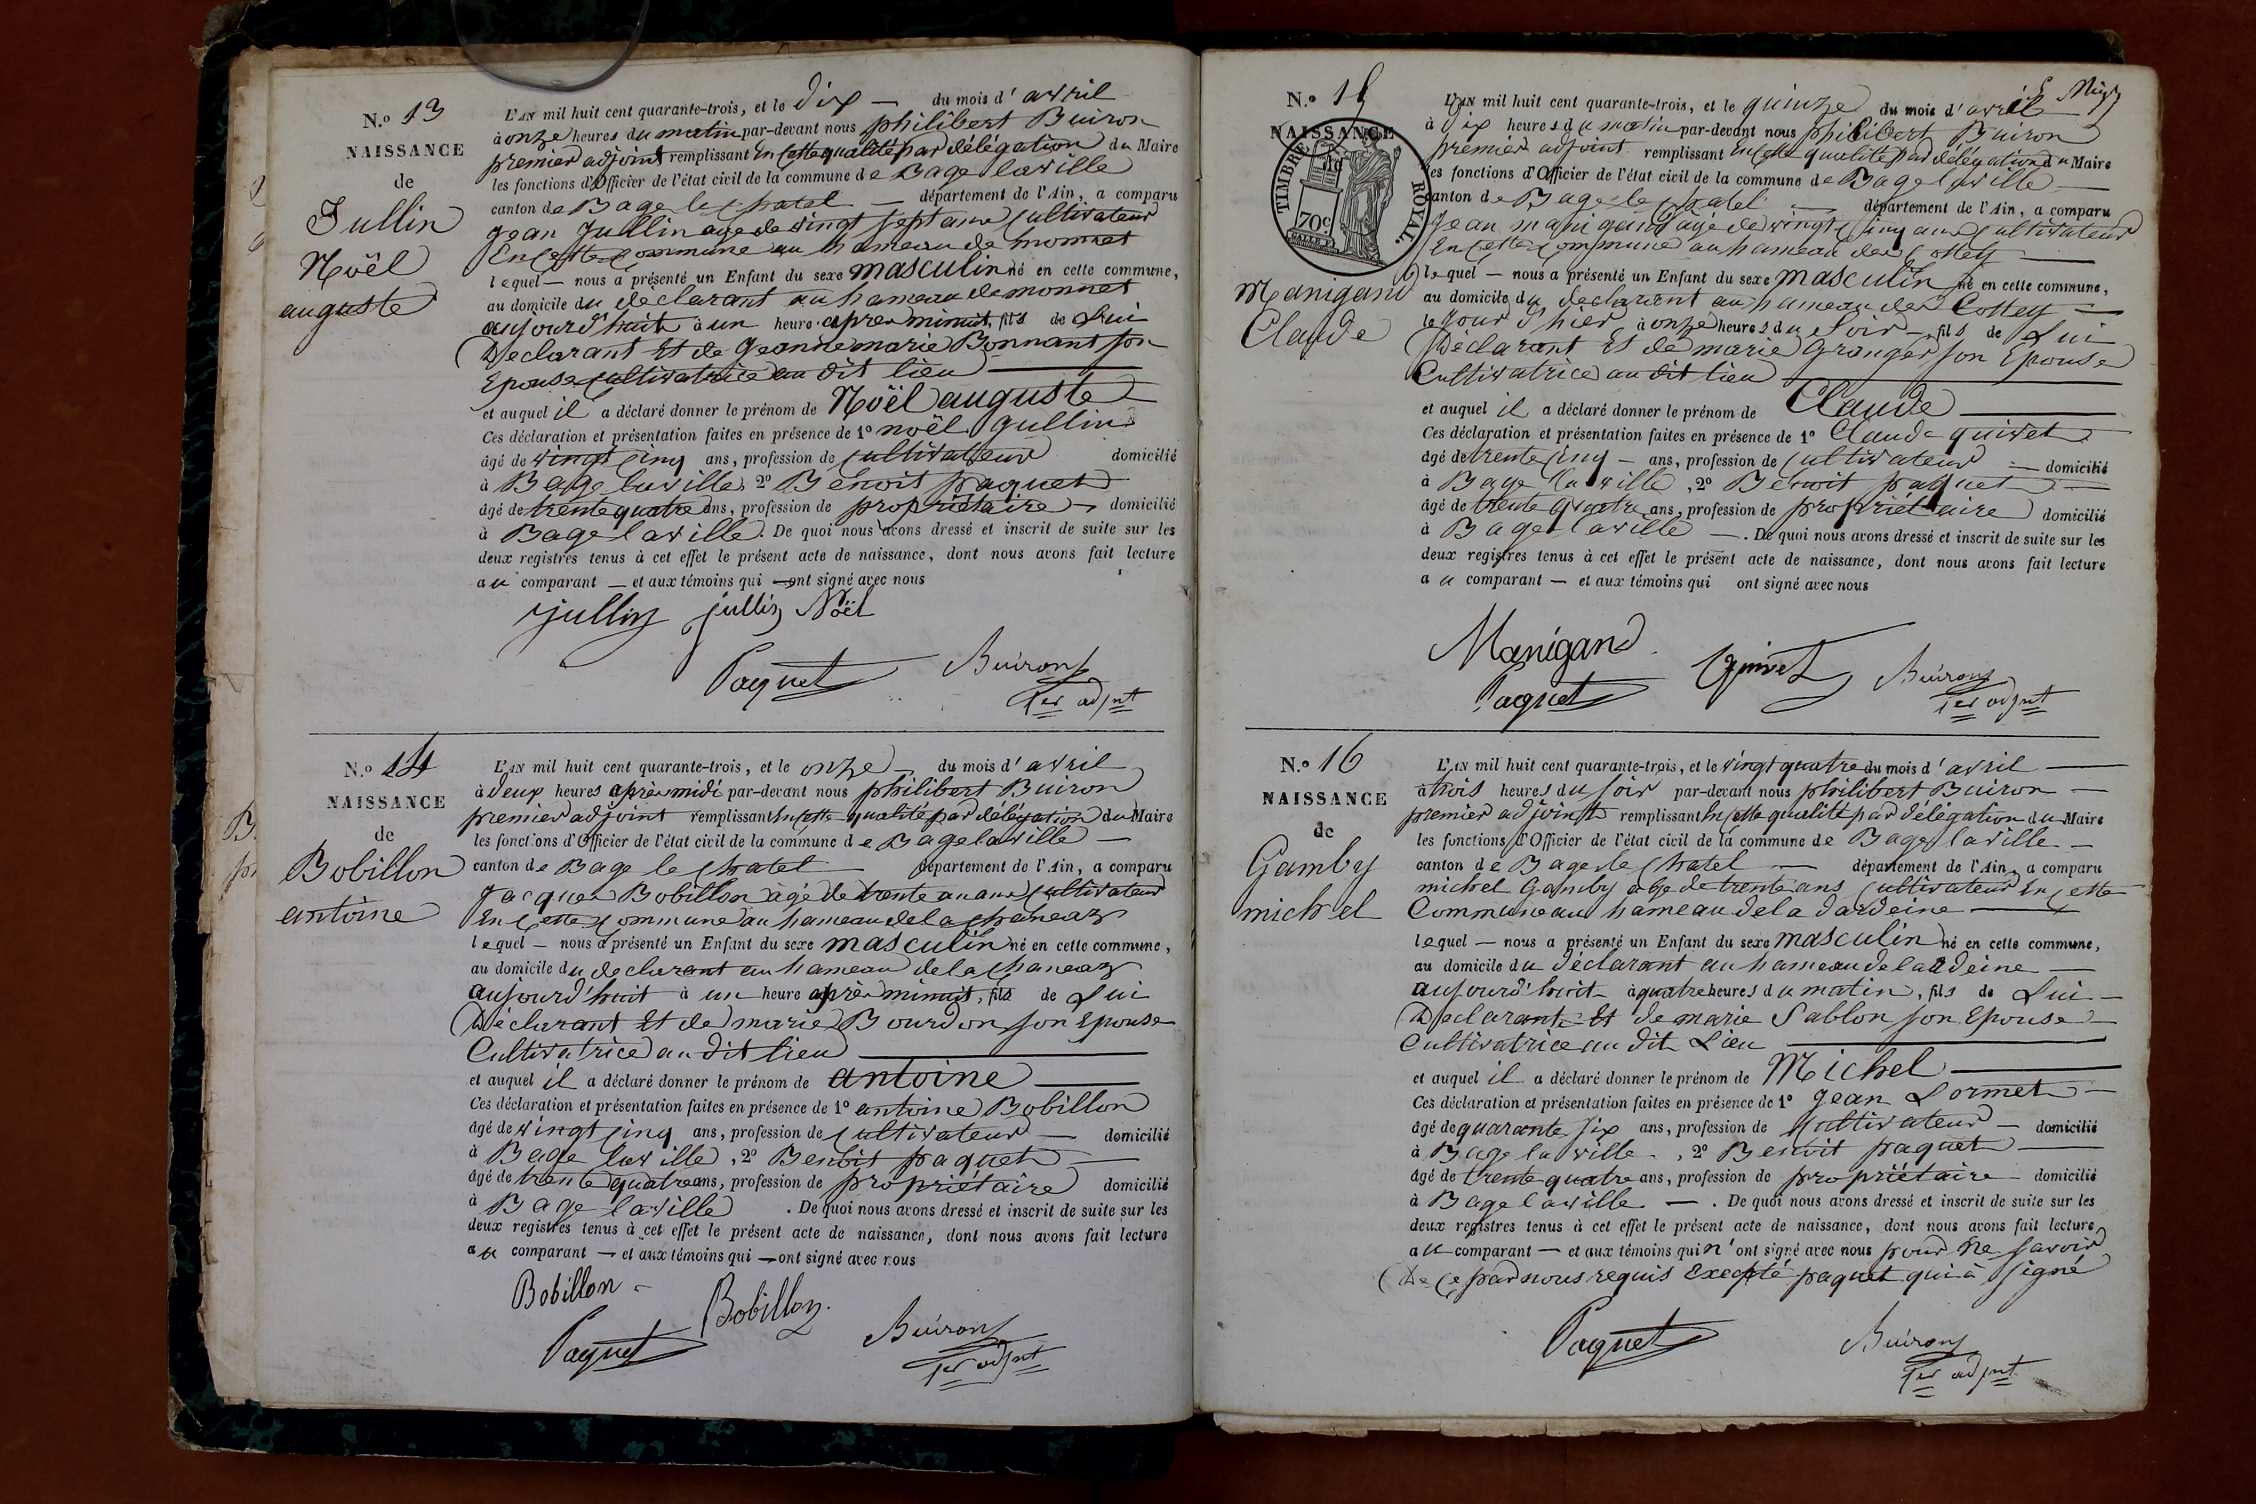 N.o 13
NAISSANCE
de
Jullin
Noël
auguste
L'AN mil huit cent quarante-trois, et le dix — du mois d'avril
à onze heures du matin par-devant nous philibert Buiron
premier adjoint remplissant En cette qualité par délégation du Maire
les fonctions d'Officier de l'état civil de la commune de Bage laville
canton de Bage le chatel — département de l'Ain, a comparu
jean jullin age de vingt sept ans cultivateur
En cette commune au hameau de monnet
lequel — nous a présenté un Enfant du sexe masculin né en cette commune,
au domicile du declarant au hameau de monnet
aujourd'huit à un heure après minuit, fils de Lui
Declarant Et de jeanne marie Bonnant son
Epouse cultivatrice au dit lieu
et auquel il a déclaré donner le prénom de Noël auguste
Ces déclaration et présentation faites en présence de 1o noël jullin
âgé de vingt cinq ans, profession de cultivateur domicilié
à Bage laville, 2o Benoit paquet
âgé de trente quatre ans, profession de propriétaire — domicilié
à Bage laville. De quoi nous avons dressé et inscrit de suite sur les
deux registres tenus à cet effet le présent acte de naissance, dont nous avons fait lecture
au comparant — et aux témoins qui — ont signé avec nous
jullin jullin Noël
Paquet Buiron
1er adjnt
N.o 14
NAISSANCE
de
Bobillon
antoine
L'AN mil huit cent quarante-trois, et le onze — du mois d'avril
à deux heures après midi par-devant nous philibert Buiron
premier adjoint remplissant En cette qualité par délégation du Maire
les fonctions d'Officier de l'état civil de la commune de Bage laville —
canton de Bage le chatel département de l'Ain, a comparu
jacques Bobillon âgé de trente un ans cultivateur
En cette commune au hameau de la chaneaz
lequel — nous a présenté un Enfant du sexe masculin né en cette commune,
au domicile du declarant au hameau de la chaneaz
aujourd'huit à un heure après minuit, fils de Lui
Déclarant Et de marie Bourdon son Epouse
Cultivatrice au dit lieu
et auquel il a déclaré donner le prénom de antoine
Ces déclaration et présentation faites en présence de 1o antoine Bobillon
âgé de vingt cinq ans, profession de cultivateur — domicilié
à Bage laville, 2o Benoit paquet
âgé de trente quatre ans, profession de propriétaire domicilié
à Bage laville. De quoi nous avons dressé et inscrit de suite sur les
deux registres tenus à cet effet le présent acte de naissance, dont nous avons fait lecture
au comparant — et aux témoins qui — ont signé avec nous
Bobillon Bobillon
Paquet Buiron
1er adjnt
N.o 15
NAISSANCE
de
TIMBRE ROYAL
70c
Manigand
Claude
L'AN mil huit cent quarante-trois, et le quinze du mois d'avril
à dix heures du matin par-devant nous philibert Buiron
premier adjoint remplissant En cette qualité par délégation du Maire
les fonctions d'Officier de l'état civil de la commune de Bage laville —
canton de Bage le chatel — département de l'Ain, a comparu
jean manigand âgé de vingt cinq ans cultivateur
En cette commune au hameau des Cottey
lequel — nous a présenté un Enfant du sexe masculin né en cette commune,
au domicile du declarant au hameau des Cottey —
le jour d'hier à onze heures du soir — fils de Lui
Déclarant Et de marie Granger son Epouse
Cultivatrice au dit lieu
et auquel il a déclaré donner le prénom de Claude
Ces déclaration et présentation faites en présence de 1o Claude quivet
âgé de trente cinq — ans, profession de cultivateur — domicilié
à Bage laville, 2o Benoit paquet
âgé de trente quatre ans, profession de propriétaire domicilié
à Bage laville —. De quoi nous avons dressé et inscrit de suite sur les
deux registres tenus à cet effet le présent acte de naissance, dont nous avons fait lecture
au comparant — et aux témoins qui ont signé avec nous
Manigand
Paquet Quivet Buiron
1er adjnt
N.o 16
NAISSANCE
de
Gamby
michel
L'AN mil huit cent quarante-trois, et le vingt quatre du mois d'avril —
à trois heures du soir par-devant nous philibert Buiron —
premier adjoint remplissant En cette qualité par délégation du Maire
les fonctions d'Officier de l'état civil de la commune de Bage laville —
canton de Bage le chatel — département de l'Ain, a comparu
michel Gamby age de trente ans cultivateur En cette
Commune au hameau de la dardeine
lequel — nous a présenté un Enfant du sexe masculin né en cette commune,
au domicile du déclarant au hameau de
aujourd'huit à quatre heures du matin, fils de Lui —
Declarant Et de marie Sablon son Epouse
Cultivatrice au dit Lieu
et auquel il a déclaré donner le prénom de Michel
Ces déclaration et présentation faites en présence de 1o jean Lormet —
âgé de quarante six ans, profession de cultivateur — domicilié
à Bage laville, 2o Benoit paquet
âgé de trente quatre ans, profession de propriétaire domicilié
à Bage laville —. De quoi nous avons dressé et inscrit de suite sur les
deux registres tenus à cet effet le présent acte de naissance, dont nous avons fait lecture
au comparant — et aux témoins qui n'ont signé avec nous pour ne savoir
De ce par nous requis Excepté paquet qui à signé
Paquet Buiron
1er adjnt